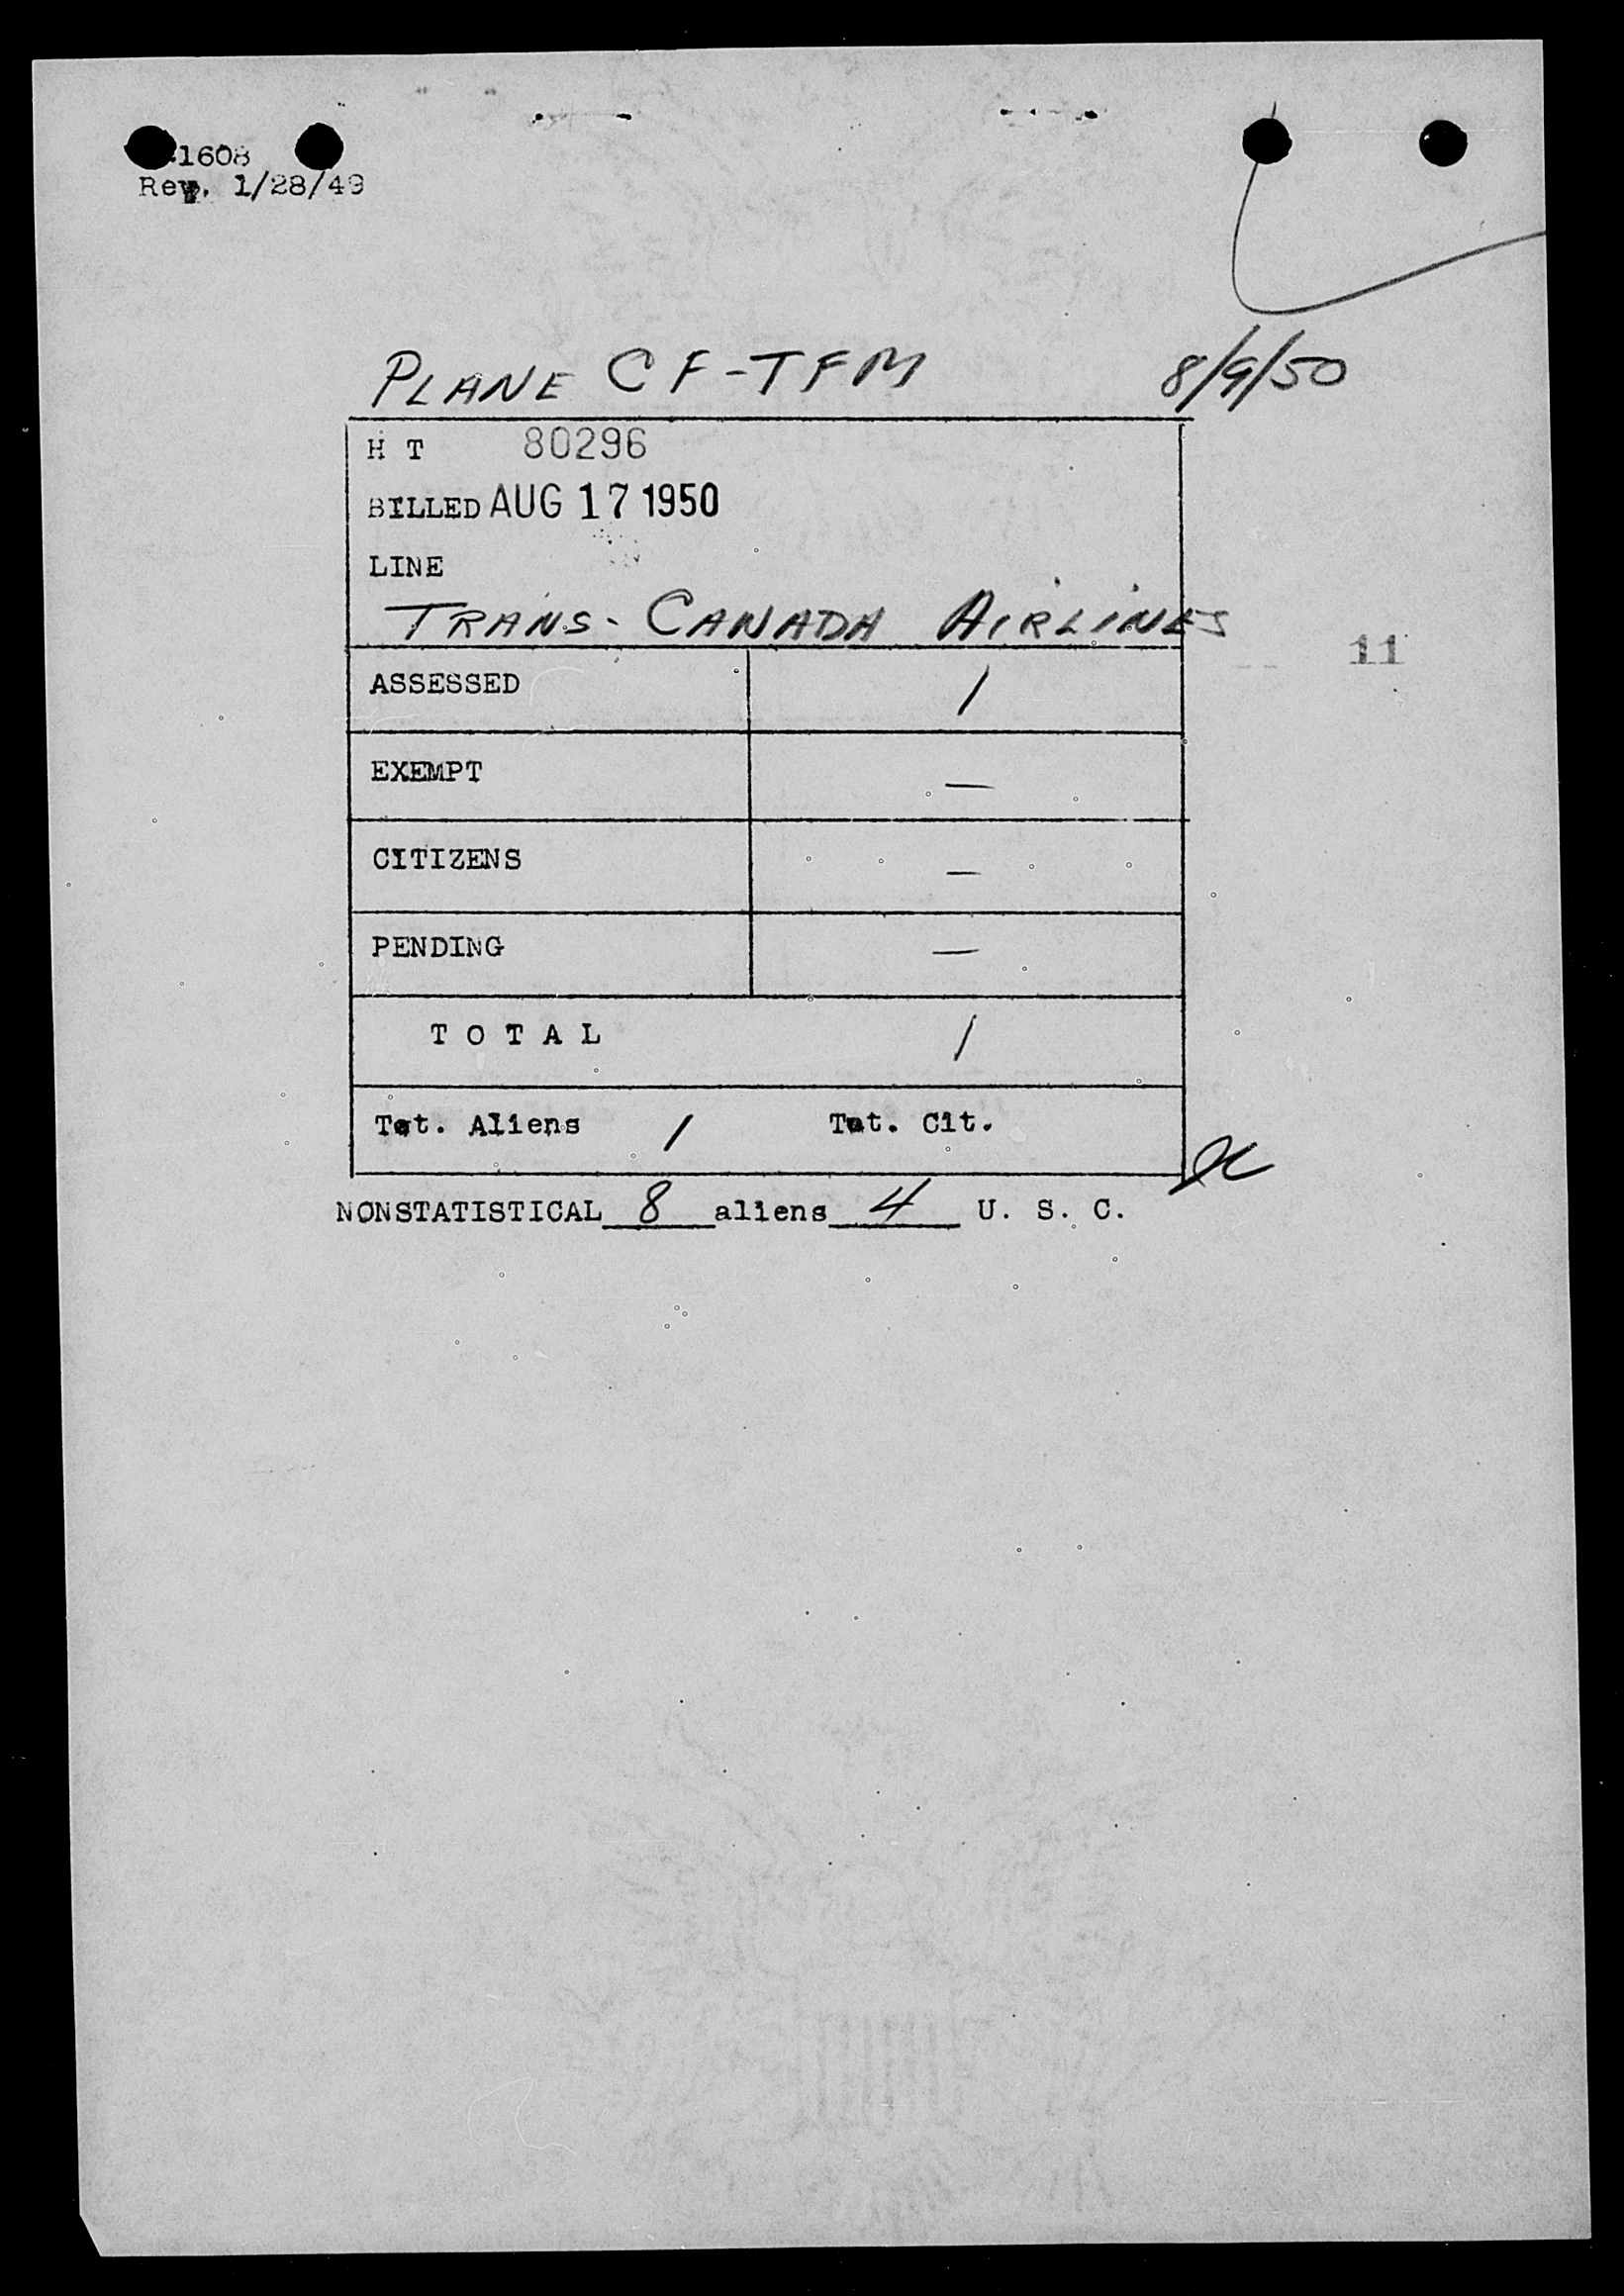 1608
Rev. 1/28/49
PLANE CF-TFM 8/9/50
H T 80296
BILLED AUG 17 1950
LINE
TRANS-CANADA AIRLINES
11
ASSESSED 1
EXEMPT —
CITIZENS —
PENDING —
T O T A L 1
Tot. Aliens 1 Tot. Cit.
NONSTATISTICAL 8 aliens 4 U. S. C.